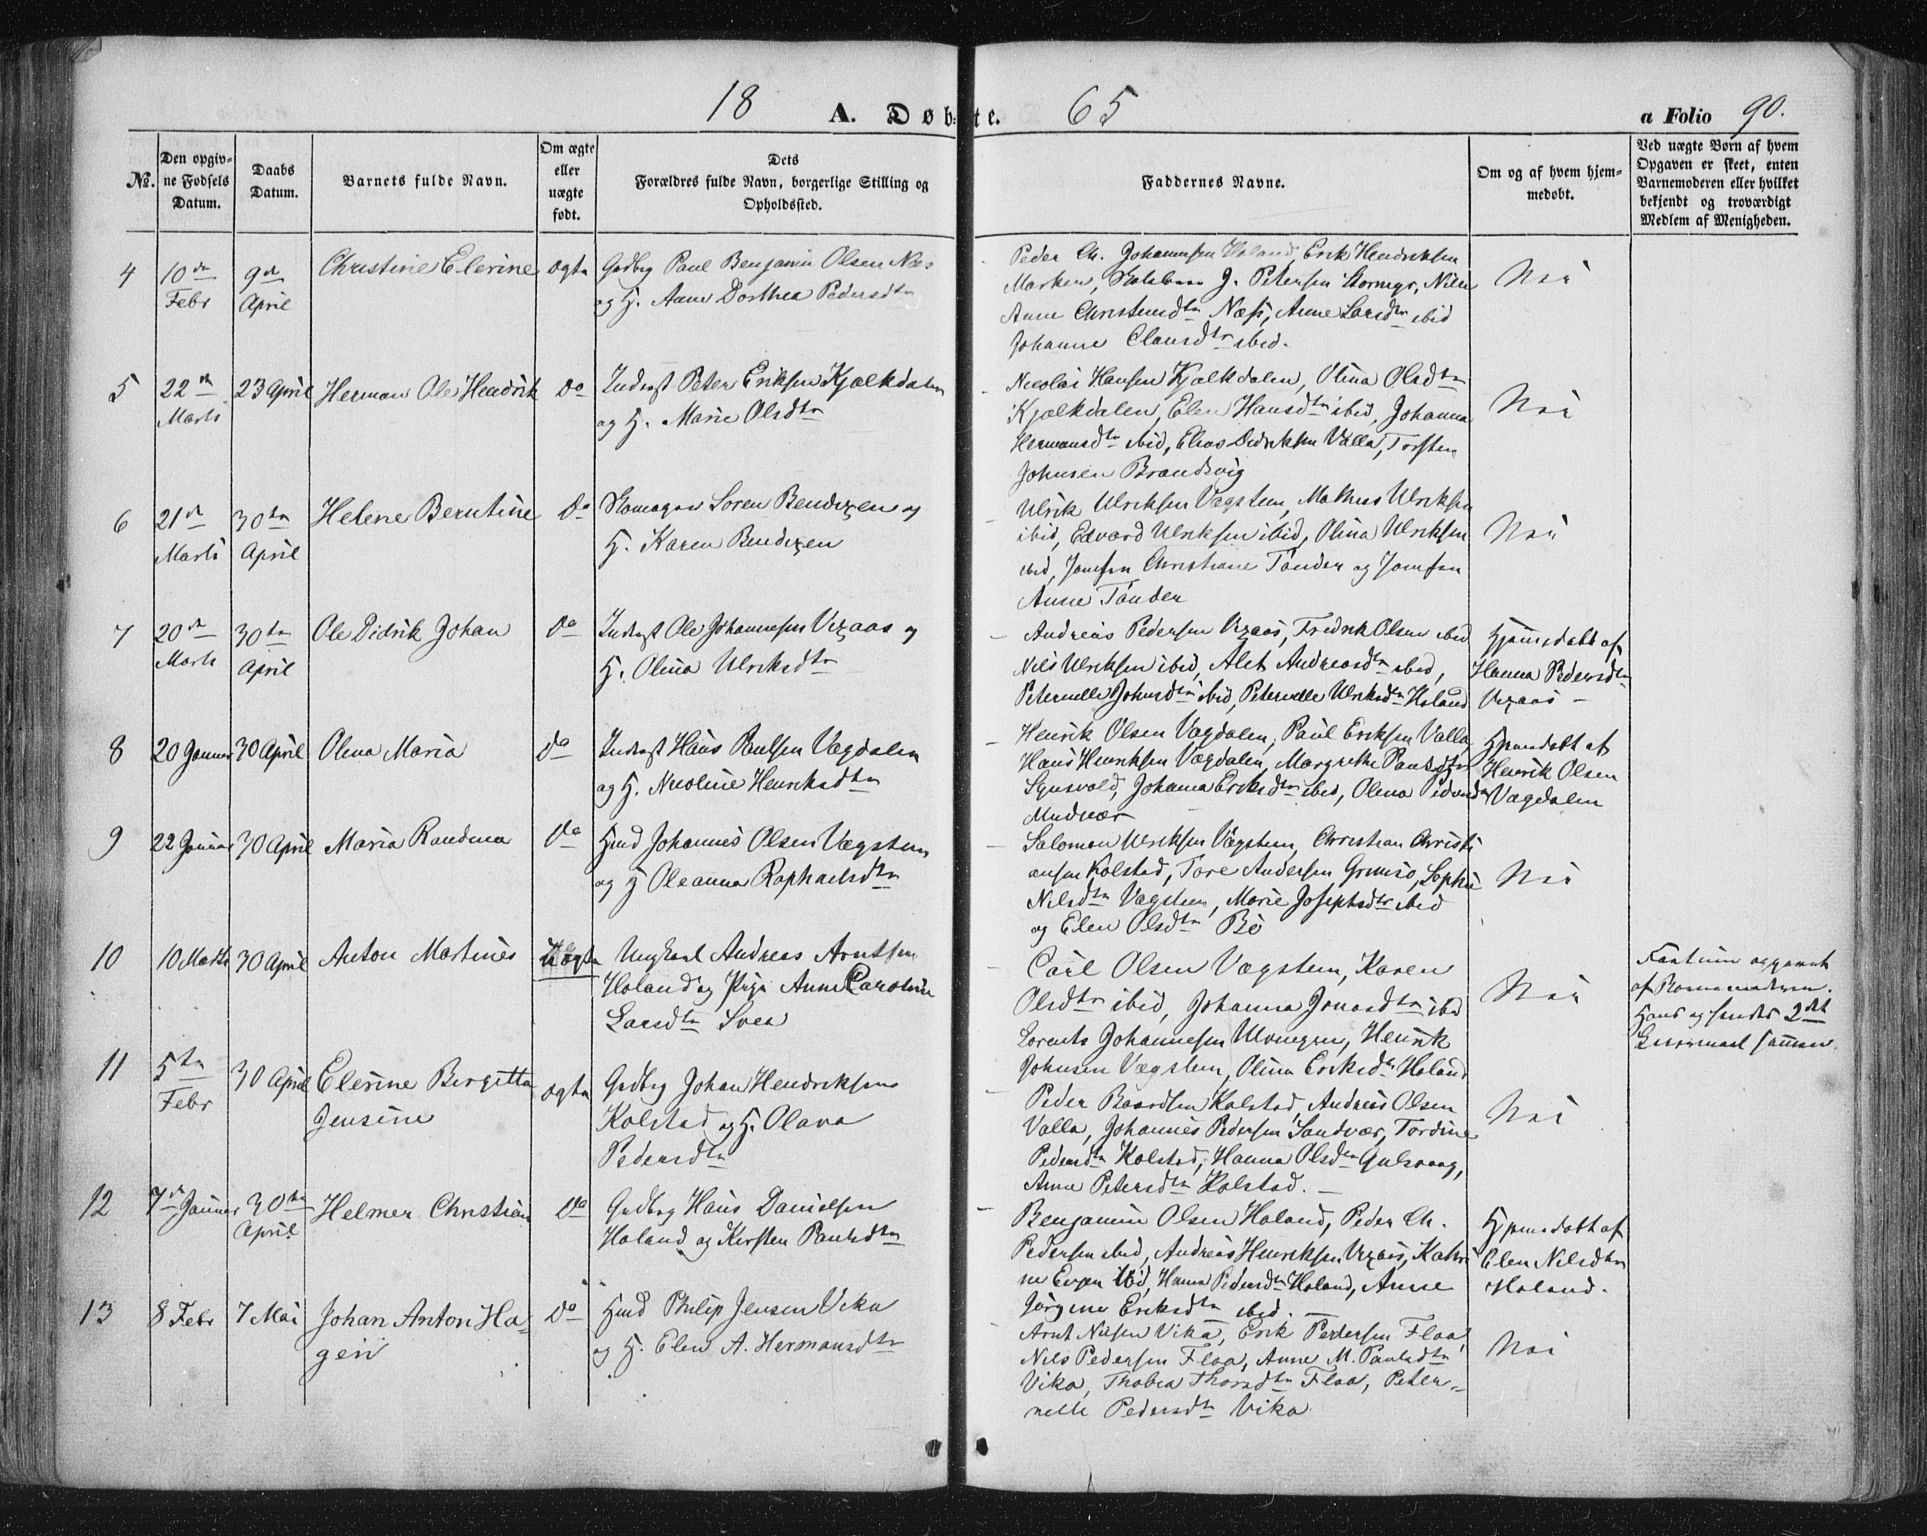 18 A. Døbte. 65 a Folio 90.
No. Den opgivne Fødsels Datum. Daabs Datum. Barnets fulde Navn. Om ægte eller uægte født. Dets Forældres fulde Navn, borgerlige Stilling og Opholdssted. Faddernes Navne. Om og af hvem hjemmedøbt. Ved uægte Børn af hvem Opgaven er skeet, enten Barnemoderen eller hvilket bekjendt og troværdigt Medlem af Menigheden.
4 10de Febr 9de April Christine Elerine ægte
Gdbrg Paul Benjamin Olsen Næs
og H. Anne Dorthea Pedersdtr
Peder Ch. Johannesen Holand, Erik Hendriksen
Marken, J. Petersen
Anne Christensdtr Næss, Anne Larsdtr ibid
Johanne Clausdtr ibid.
Nei
5 22de Marts 23 April Herman Ole Hendrik Do
Inderst Peter Eriksen Kjælkdalen
og H. Marie Olsdtr
Nicolai Hansen Kjælkdalen, Olina Olsdtr
Kjælkdalen, Elen Hansdtr ibid, Johanna
Hermansdtr ibid, Elias Didriksen Valla, Torsten
Johnsen Brandsvig
Nei
6 21de Marts 30te April Helene Berntine Do
Skomager Soren Bendixen og
H. Karen Bendixen
Ulrik Ulriksen Vægstein, Mathias Ulriksen
ibid, Edvard Ulriksen ibid, Olina Ulriksen
ibid, Jomfru Christiane Tønder og Jomfru
Anne Tønder
Nei
7 20de Marts 30te April Ole Didrik Johan Do
Inderst Ole Johannesen Urzaas og
H. Olina Ulriksdtr
Andreas Pedersen Urzaas, Fredrik Olsen ibid
Nils Ulriksen ibid, Alet Andreasdtr ibid,
Peternelle Johnsdtr ibid, Peternelle Ulriksdtr Holand
Hjemmedøbt af
Hanna Pedersdtr
Urzaas –
8 20 Januar 30 April Olena Maria Do
Inderst Hans Paulsen Vægdalen
og H. Nicoline Henriksdtr
Henrik Olsen Vægdalen, Paul Eriksen Valla,
Hans Henriksen Vægdalen, Margrethe Paulsdtr
Johanna Eriksdtr ibid, Olena
Hjemmedøbt af
Henrik Olsen
Vægdalen
9 22 Januar 30 April Maria Randina Do
Hmd Johannes Olsen Vægstein
og H Oleanna Raphaelsdtr
Salomon Ulriksen Vægstein, Christian Christi
ansen Kolstad, Tore Andersen Grimsø, Sophie
Nilsdtr Vægstein, Marie Josephsdtr ibid
og Elen Olsdtr Bø
Nei
10 10 Marts 30 April Anton Martines uægte
Ungkarl Andreas Arntsen
Holand og Pige Anne Caroline
Larsdtr Svea
Carl Olsen Vægstein, Karen
Olsdtr ibid, Johanna Jonasdtr ibid
Lorents Johannesen Henrik
Johnsen Vægstein, Olina Eriksdtr Holand
Nei
opgivet
af Barnemoderen.
Hans og hendes 2det
Leiermaal sammen.
11 5te Febr 30 April Elerine Birgitta
Jensine ægte
Gdbrg Johan Hendriksen
Kolstad og H. Olava
Pedersdtr
Peder Baardsen Kolstad, Andreas Olsen
Valla, Johannes Pedersen Sandvær, Tordine
Pedersdtr Kolstad, Hanna Olsdtr Gulsvaag,
Anne Petersdtr Kolstad. –
Nei
12 7de Januar 30te April Helmer Christian Do
Gdbrg Hans Danielsen
Holand og Kirsten Paulsdtr
Benjamin Olsen Holand, Peder Ch.
Pedersen ibid, Andreas Henriksen Urzaas, Kathri
ne ibid, Hanna Pedersdtr Holand, Anne
Jørgine Eriksdtr ibid. –
Hjemmedøbt af
Elen Nilsdtr
Holand.
13 8 Febr 7 Mai Johan Anton Ha-
gen Do
Hmd Philip Jensen Vika
og H. Elen A. Hermansdtr
Arnt Nilsen Vika, Erik Pedersen Floa,
Nils Pedersen Floa, Anne M. Paulsdtr
Vika, Thobea Thorsdtr Floa, Peter-
nelle Pedersdtr Vika
Nei